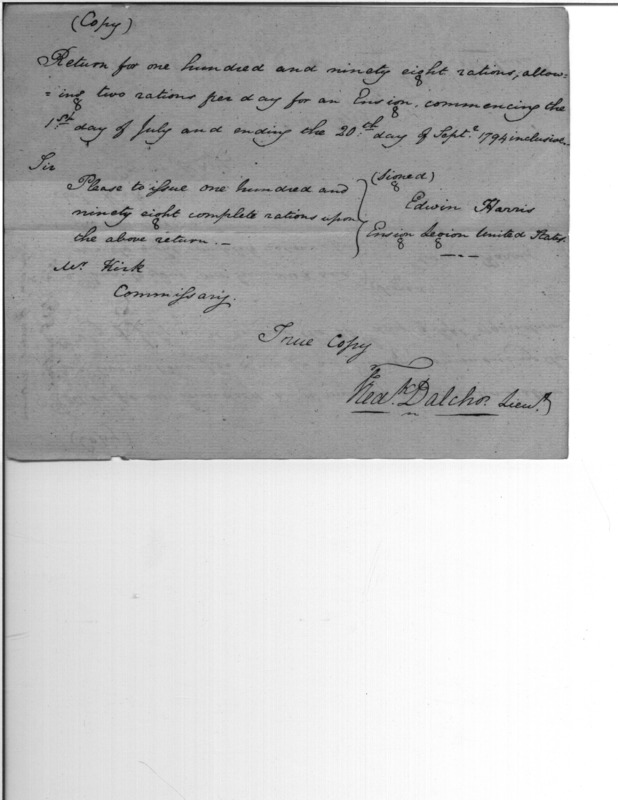 (Copy)
Return for one hundred and ninety eight rations, allow=
=ing two rations per day for an Ensign, commencing the
1st day of July and ending the 20th day of Septr. 1794 inclusive
Sir
Please to issue one hundred and
ninety eight complete rations upon
the above return.—
(Signed)
Edwin Harris
Ensign Legion United States.
Mr. Kirk
Commissary.
True Copy
Fredk. Dalcho. Lieut.